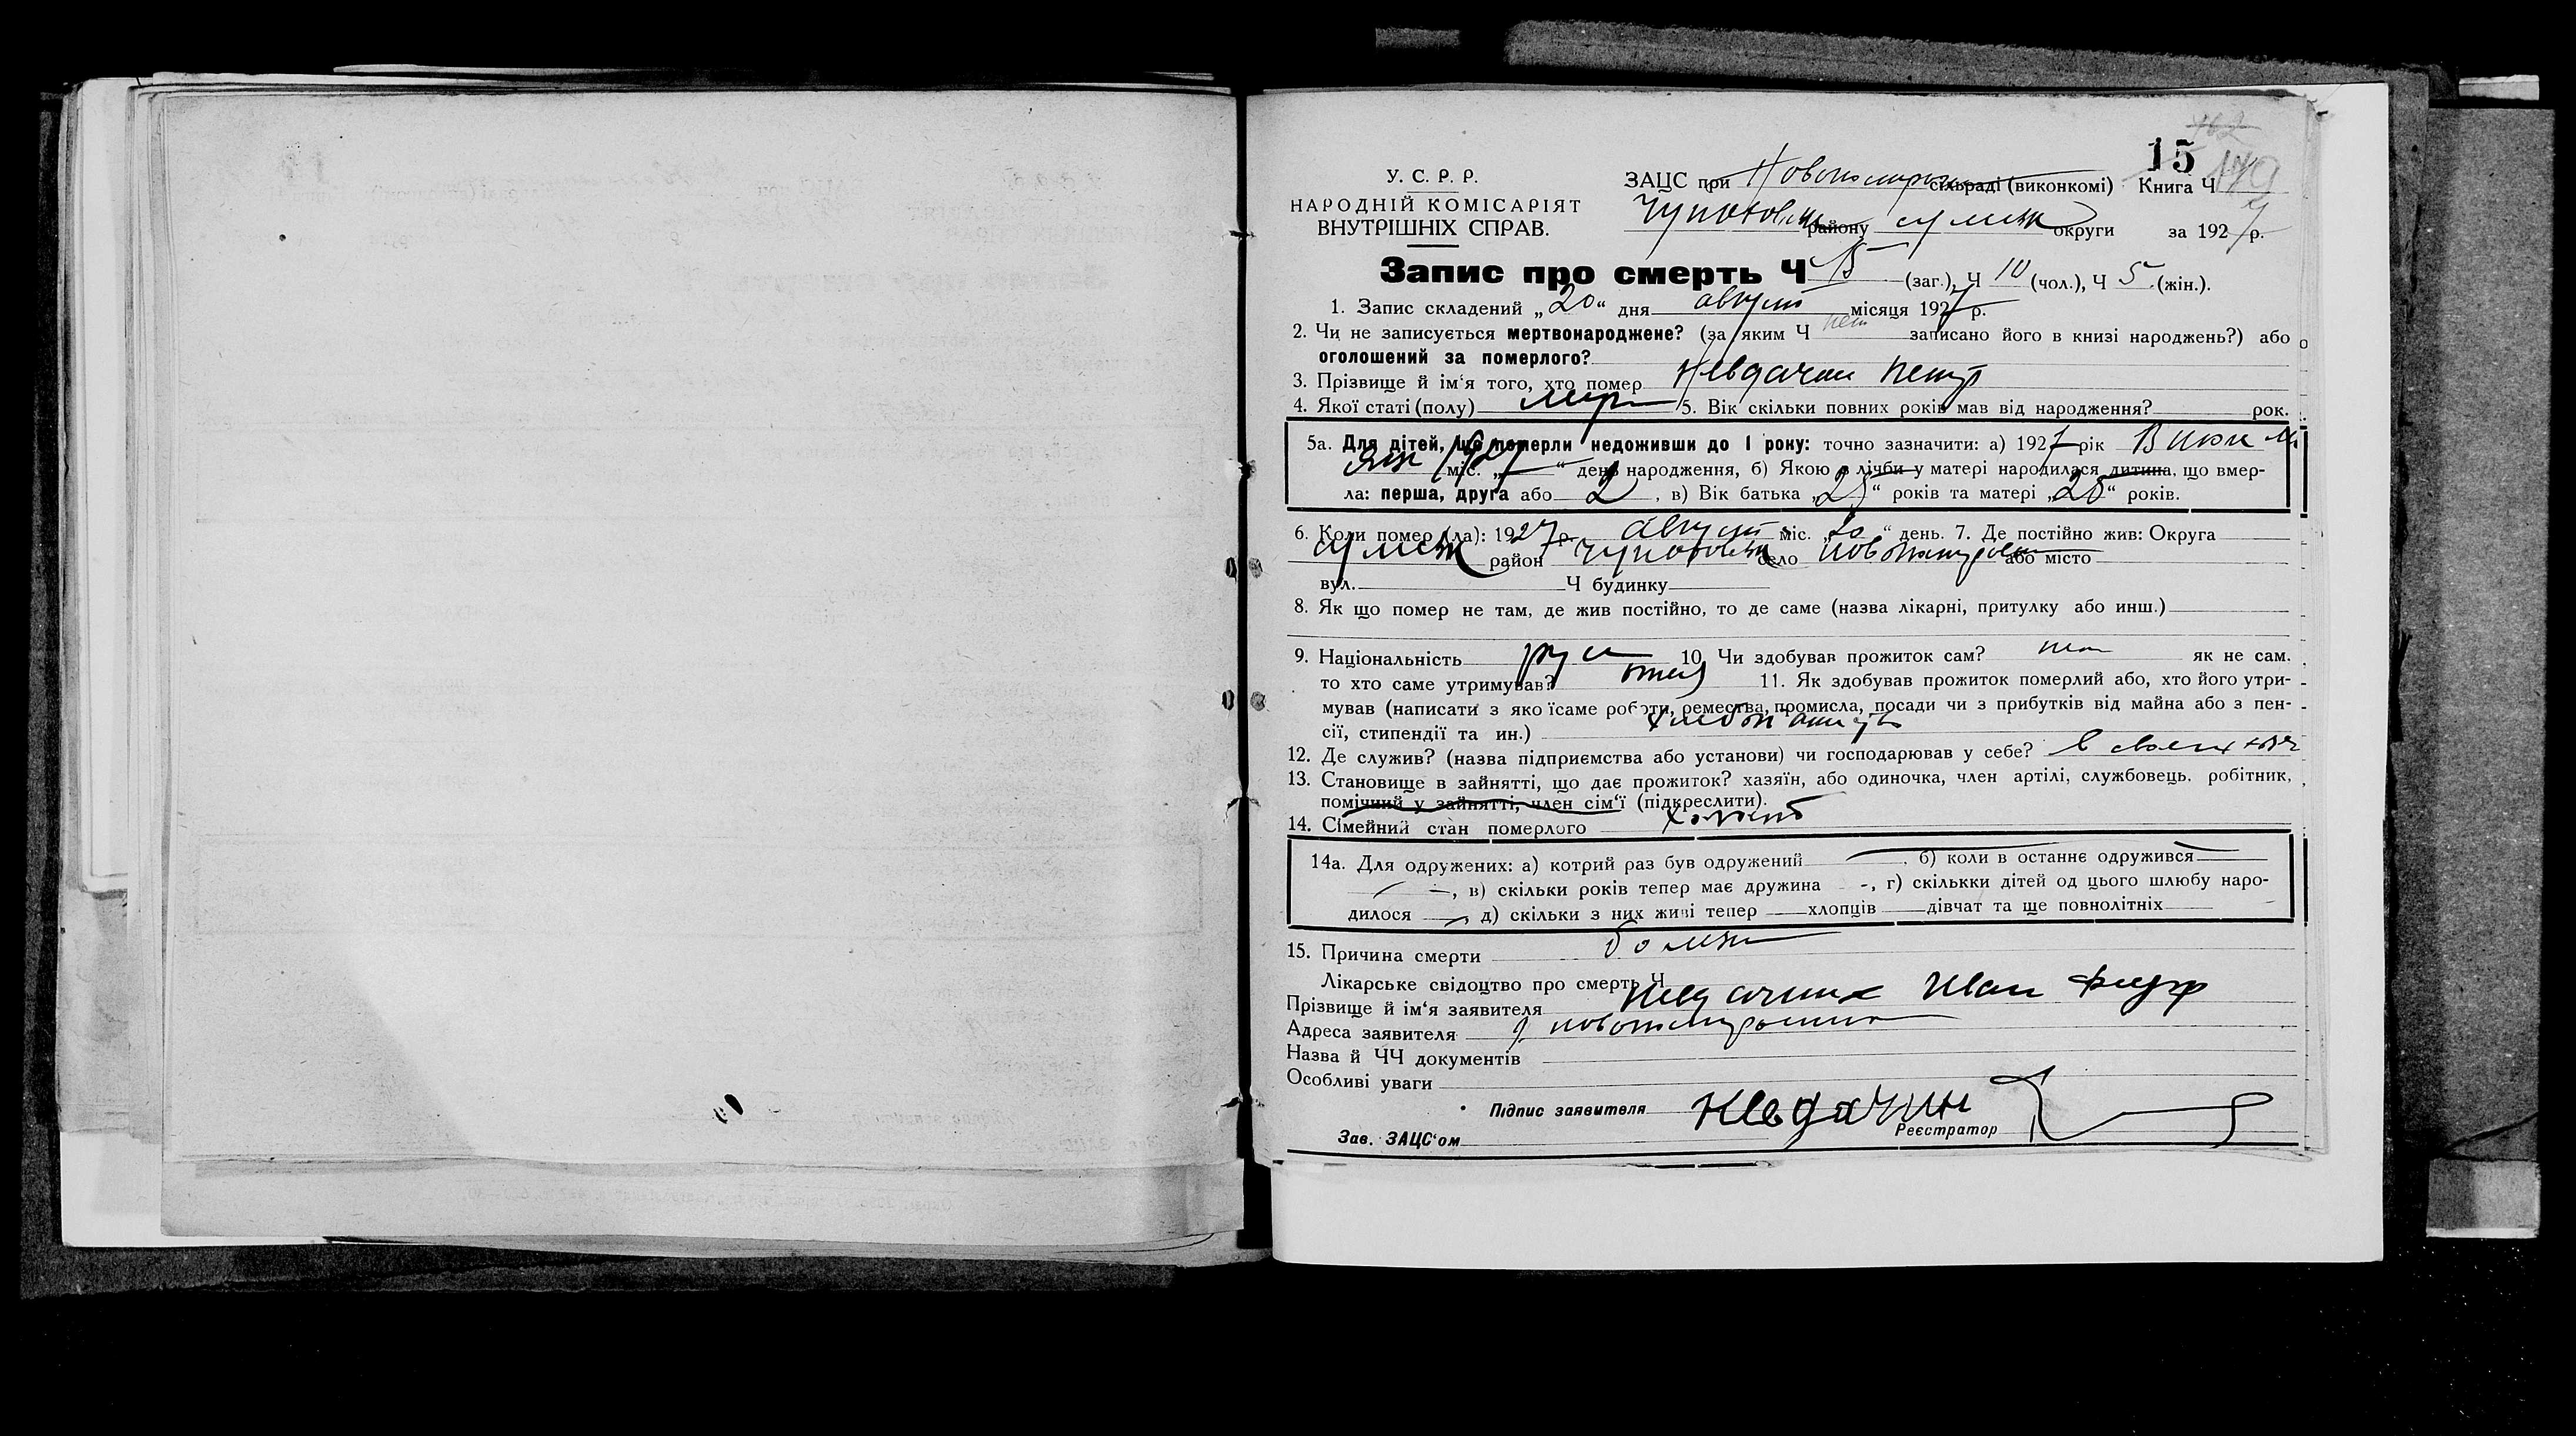 15
У. С. Р. Р.
НАРОДНІЙ КОМІСАРІЯТ
ВНУТРІШНІХ СПРАВ.
ЗАЦС при сільраді (виконкомі) Книга Ч
району округи за 1927 р.
Запис про смерть Ч 15 (заг.), Ч 10 (чол.), Ч 5 (жін.).
1. Запис складений „20“ дня август місяця 1927 р.
2. Чи не записується мертвонароджене? (за яким Ч нет записано його в книзі народжень?) або
оголошений за померлого?
3. Прізвище й ім‘я того, хто помер Невдачин Петр
4. Якої статі (полу) 5. Вік скільки повних років мав від народження? рок.
5а. Для дітей, що померли недоживши до 1 року: точно зазначити: а) 1927 рік
міс. „ “ день народження, б) Якою з лічби у матері народилася дитина, що вмер-
ла: перша, друга або 2, в) Вік батька „ “ років та матері „ “ років.
6. Коли помер (ла): 1927 р. август міс. „20“ день. 7. Де постійно жив: Округа
район село або місто
вул. Ч будинку
8. Як що помер не там, де жив постійно, то де саме (назва лікарні, притулку або инш.)
9. Національність рус 10. Чи здобував прожиток сам? як не сам.
то хто саме утримував? отец 11. Як здобував прожиток померлий або, хто його утри-
мував (написати з яко їсаме роботи, ремества, промисла, посади чи з прибутків від майна або з пен-
сії, стипендії та ин.) хлебопашец
12. Де служив? (назва підприємства або установи) чи господарював у себе? в своем хоз
13. Становище в зайнятті, що дає прожиток? хазяїн, або одиночка, член артілі, службовець. робітник,
помічний у зайнятті, член сім‘ї (підкреслити).
14. Сімейний стан померлого холост
14а. Для одружених: а) котрий раз був одружений , б) коли в останнє одружився
, в) скільки років тепер має дружина -, г) скількки дітей од цього шлюбу наро-
дилося , д) скільки з них живі тепер хлопців дівчат та ще повнолітніх
15. Причина смерти
Лікарське свідоцтво про смерть Ч
Прізвище й ім‘я заявителя Невдачин Иван
Адреса заявителя
Назва й ЧЧ документів
Особливі уваги
Підпис заявителя Невдачин
Зав. ЗАЦС‘ом Реєстратор